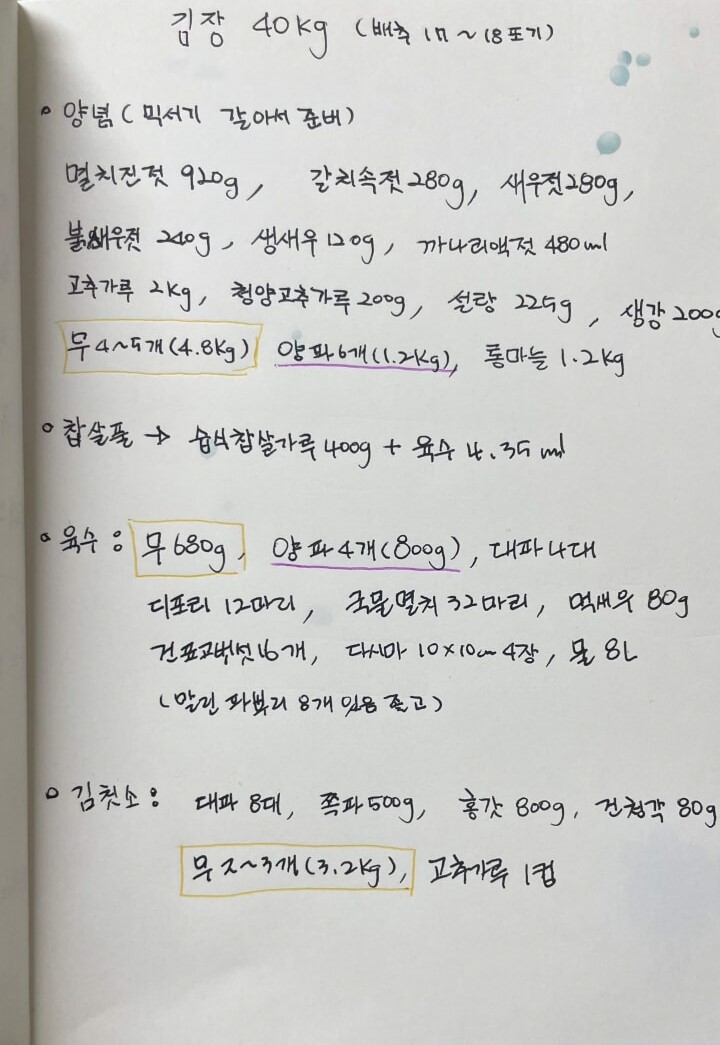 김장 40kg (배추 17~18포기)
양념 (믹서기 갈아서 준비)
멸치진젓 920g, 갈치속젓 280g, 새우젓 280g,
붉새우젓 240g, 생새우 120g, 까나리액젓 480ml
고추가루 2kg, 청양고추가루 200g, 설탕 225g, 생강 200g
무 4~5개(4.8kg) 양파 6개(1.2kg), 통마늘 1.2kg
찹쌀풀 → 습식찹쌀가루 400g + 육수 4.35ml
육수: 무 680g, 양파 4개(800g), 대파 4대
디포리 12마리, 국물멸치 32마리, 먹새우 80g
건표고버섯 16개, 다시마 10×10cm 4장, 물 8L
(말린 파뿌리 8개 있음 좋고)
김칫소: 대파 8대, 쪽파 500g, 홍갓 800g, 건청각 80g
무 2~3개(3.2kg), 고추가루 1컵